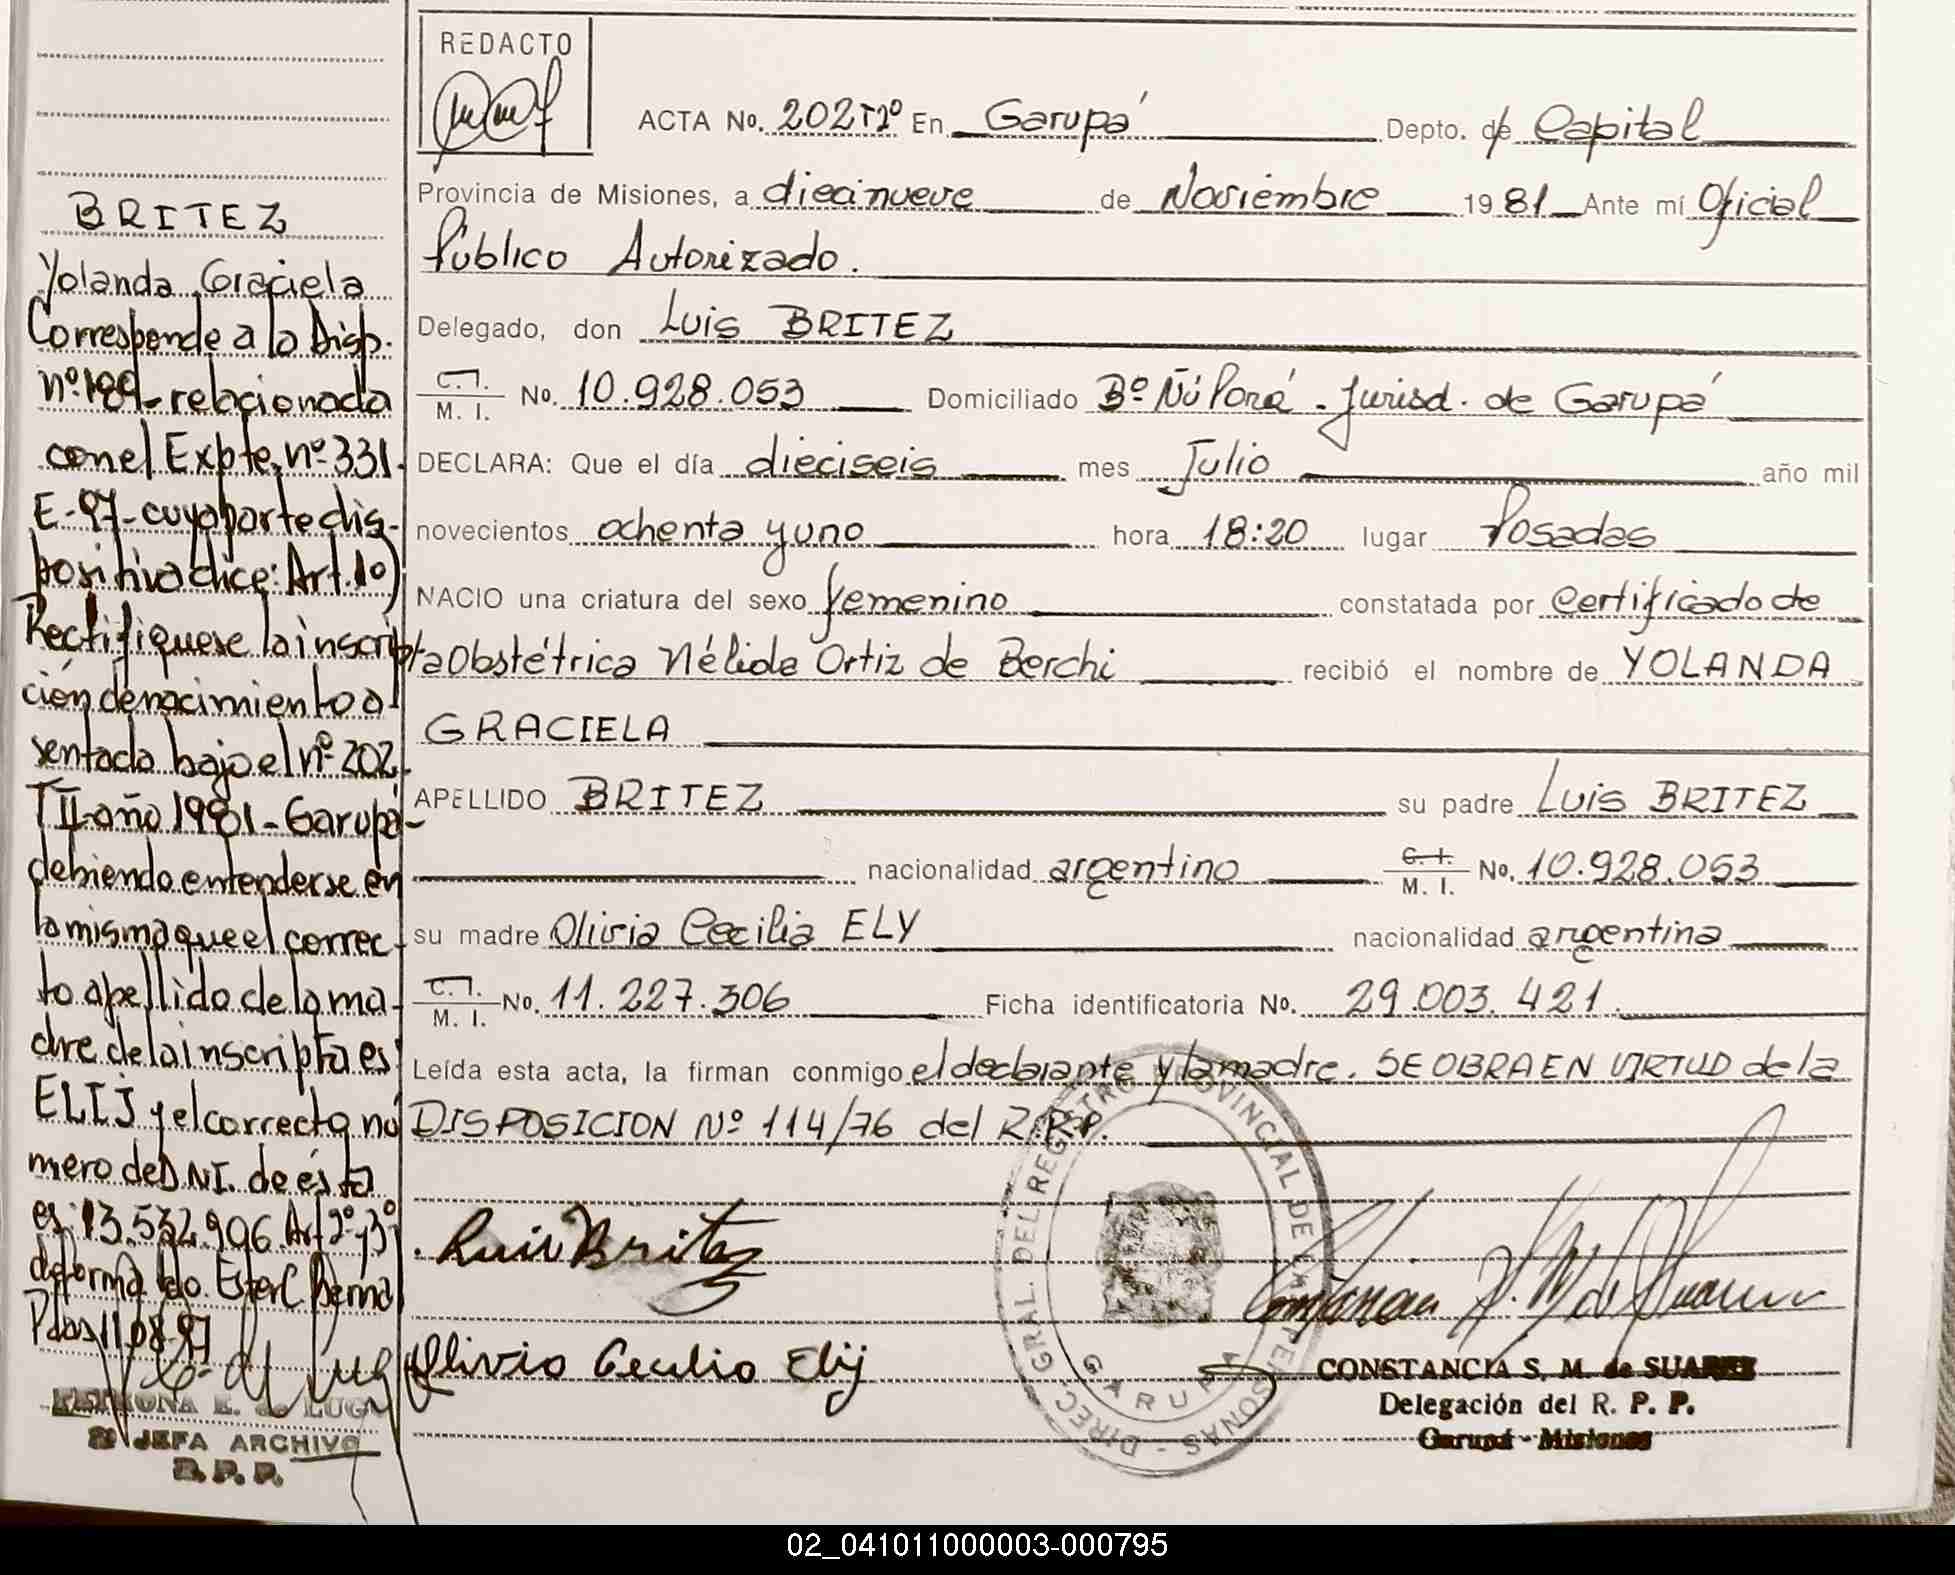 BRITEZ
Yolanda Graciela
Corresponde a la Disp.
nº 189 - relacionada
con el Expte. nº 331
E-97- cuya parte dis-
positiva dice: Art. 1º)
Rectifiquese la inscrip
ción de nacimiento a
sentada bajo el nº 202
T II año 1981 - Garupá-
debiendo entenderse en
la misma que el correc-
to apellido de la ma-
dre de la inscripta es
ELIJ y el correcto nú
mero de D.N.I. de ésta
es: 13.532.996. Art 2º y 3º
de forma. Fdo. Ester C Berna
Pdas 11.08.97
PETRONA E. de LUGO
JEFA ARCHIVO
R.P.P.
REDACTO
ACTA No. 202 Tº 2º En Garupá Depto. de Capital
Provincia de Misiones, a diecinueve de Noviembre 1981 Ante mí Oficial
Público Autorizado.
Delegado, don Luis BRITEZ
C.I. M. I. No. 10.928.053 Domiciliado Bº Ñú Porá - Jurisd. de Garupá
DECLARA: Que el día dieciseis mes Julio año mil
novecientos ochenta y uno hora 18:20 lugar Posadas
NACIO una criatura del sexo femenino constatada por Certificado de
la Obstétrica Nélida Ortiz de Berchi recibió el nombre de YOLANDA
GRACIELA
APELLIDO BRITEZ su padre Luis BRITEZ
nacionalidad argentino C.I. M. I. No. 10.928.053
su madre Olivia Cecilia ELY nacionalidad argentina
C.I. M. I. No. 11.227.306 Ficha identificatoria No. 29.003.421
Leída esta acta, la firman conmigo el declarante y la madre. SE OBRA EN VIRTUD de la
DISPOSICION Nº 114/76 del R.P.P.
Luis Britez
Olivia Cecilia Elij
DIREC. GRAL. DEL REGISTRO PROVINCIAL DE LAS PERSONAS - GARUPA
CONSTANCIA S. M. de SUAREZ
Delegación del R. P. P.
Garupá - Misiones
02_041011000003-000795